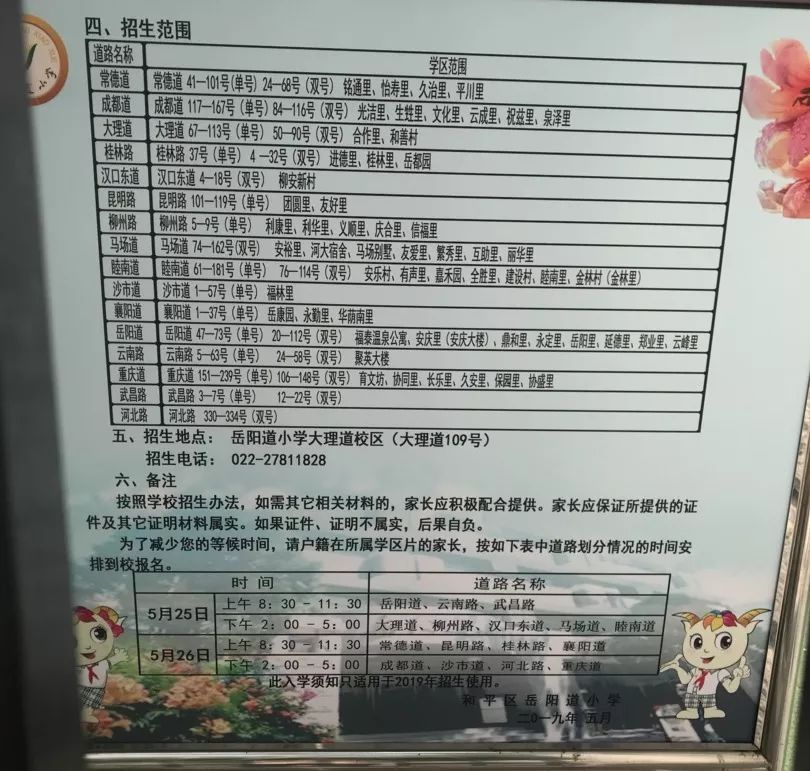 四、招生范围
道路名称 学区范围
常德道 常德道 41—101号(单号) 24—68号(双号) 铭通里、怡寿里、久治里、平川里
成都道 成都道 117—167号(单号) 84—116号(双号) 光洁里、生甡里、文化里、云成里、祝兹里、泉泽里
大理道 大理道 67—113号(单号) 50—90号(双号) 合作里、和善村
桂林路 桂林路 37号(单号) 4—32号(双号) 进德里、桂林里、岳都园
汉口东道 汉口东道 4—18号(双号) 柳安新村
昆明路 昆明路 101—119号(单号) 团圆里、友好里
柳州路 柳州路 5—9号(单号) 利康里、利华里、义顺里、庆合里、信福里
马场道 马场道 74—162号(双号) 安裕里、河大宿舍、马场别墅、友爱里、繁秀里、互助里、丽华里
睦南道 睦南道 61—181号(单号) 76—114号(双号) 安乐村、有声里、嘉禾园、全胜里、建设村、睦南里、金林村(金林里)
沙市道 沙市道 1—57号(单号) 福林里
襄阳道 襄阳道 1—37号(单号) 岳康园、永勤里、华荫南里
岳阳道 岳阳道 47—73号(单号) 20—112号(双号) 福泰温泉公寓、安庆里(安庆大楼)、鼎和里、永定里、岳阳里、延德里、郑业里、云峰里
云南路 云南路 5—63号(单号) 24—58号(双号) 聚英大楼
重庆道 重庆道 151—239号(单号) 106—148号(双号) 育文坊、协同里、长乐里、久安里、保园里、协盛里
武昌路 武昌路 3—7号(单号) 12—22号(双号)
河北路 河北路 330—334号(双号)
五、招生地点: 岳阳道小学大理道校区(大理道109号)
招生电话: 022-27811828
六、备注
按照学校招生办法，如需其它相关材料的，家长应积极配合提供。家长应保证所提供的证
件及其它证明材料属实。如果证件、证明不属实，后果自负。
为了减少您的等候时间，请户籍在所属学区片的家长，按如下表中道路划分情况的时间安
排到校报名。
时 间 道路名称
5月25日 上午 8: 30 - 11: 30 岳阳道、云南路、武昌路
下午 2: 00 - 5: 00 大理道、柳州路、汉口东道、马场道、睦南道
5月26日 上午 8: 30 - 11: 30 常德道、昆明路、桂林路、襄阳道
下午 2: 00 - 5: 00 成都道、沙市道、河北路、重庆道
此入学须知只适用于2019年招生使用。
和平区岳阳道小学
二0一九年 五月